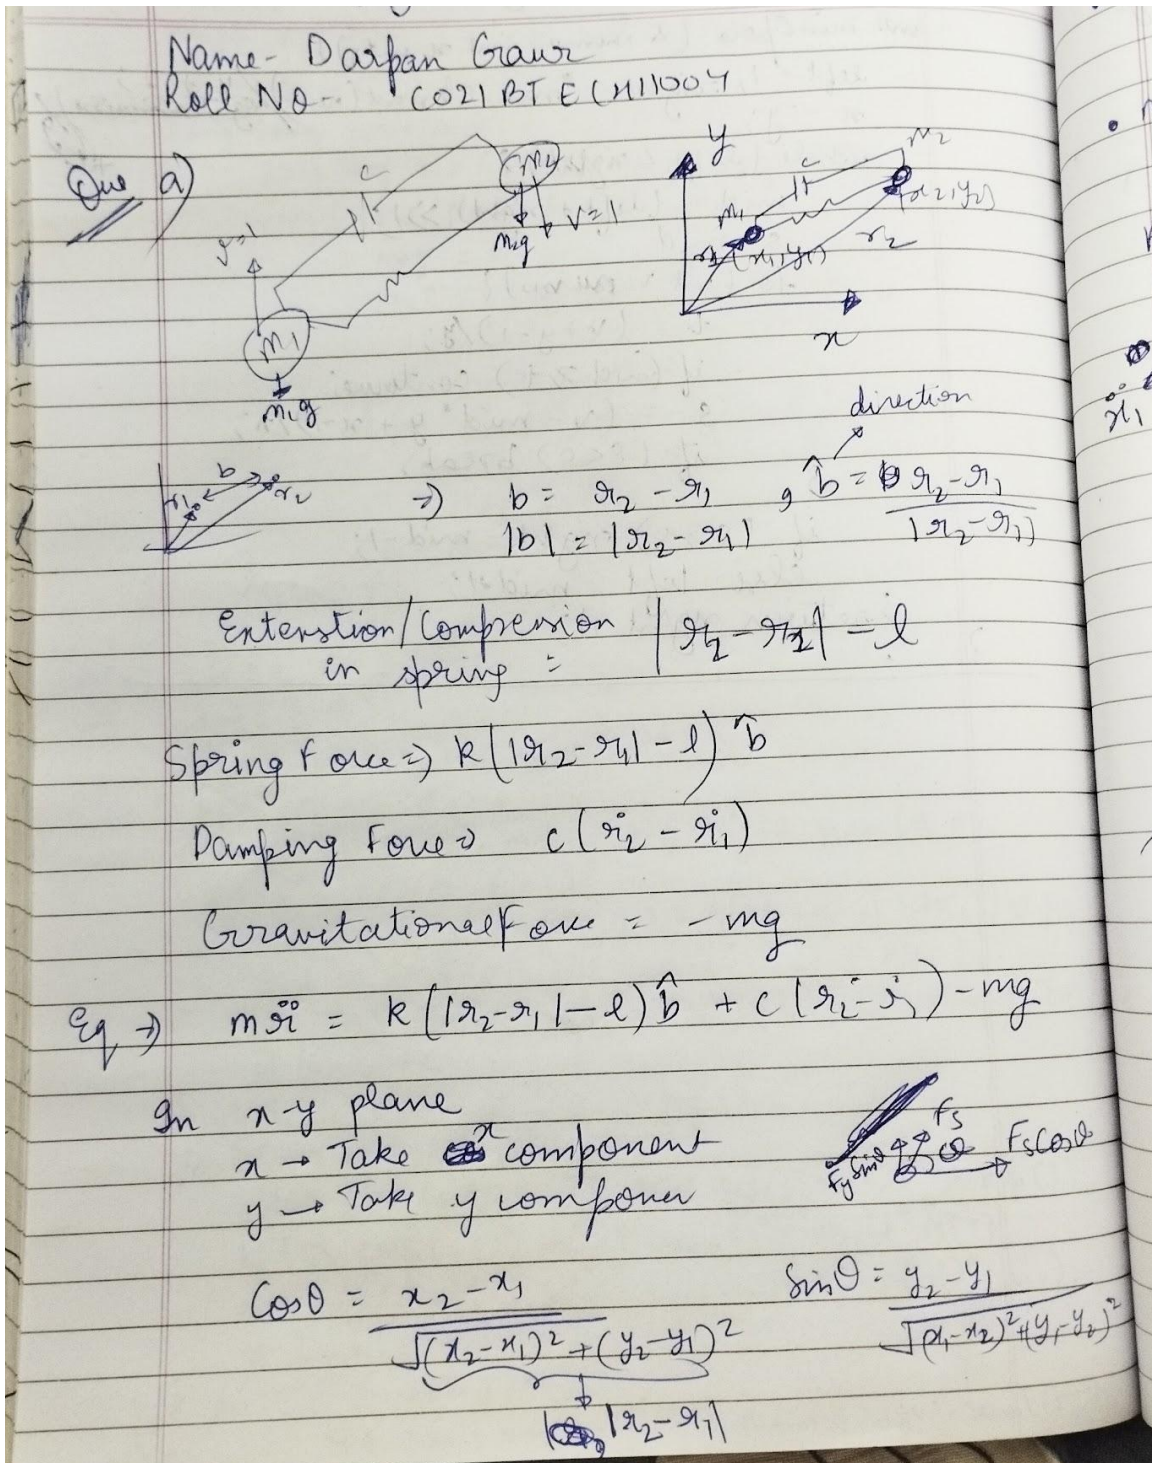 Name- Darpan Gaur
Roll No- CO21BTECH11004
Que a)
c
m2
m2g
v=1
m1
m1g
y
c
m2
m1
(x2,y2)
r1
(x1,y1)
r2
x
direction
b
r1
r2
=) b = r2 - r1 , b̂ = r2-r1 / |r2-r1|
|b| = |r2-r1|
Extenstion/Compression | r2-r1| - l
in spring =
Spring Force =) k(|r2-r1|-l) b̂
Damping Force c(ṙ2 - ṙ1)
Gravitational Force = -mg
Eq → mr̈ = k(|r2-r1|-l)b̂ + c(ṙ2-ṙ1)-mg
In x-y plane
x → Take x component
y → Take y componen
Fs
θ
Fs Cosθ
Fy Sinθ
Cosθ = x2-x1 / √(x2-x1)²+(y2-y1)²
Sinθ = y2-y1 / √(x1-x2)²+(y1-y2)²
|r2-r1|
ẍ1